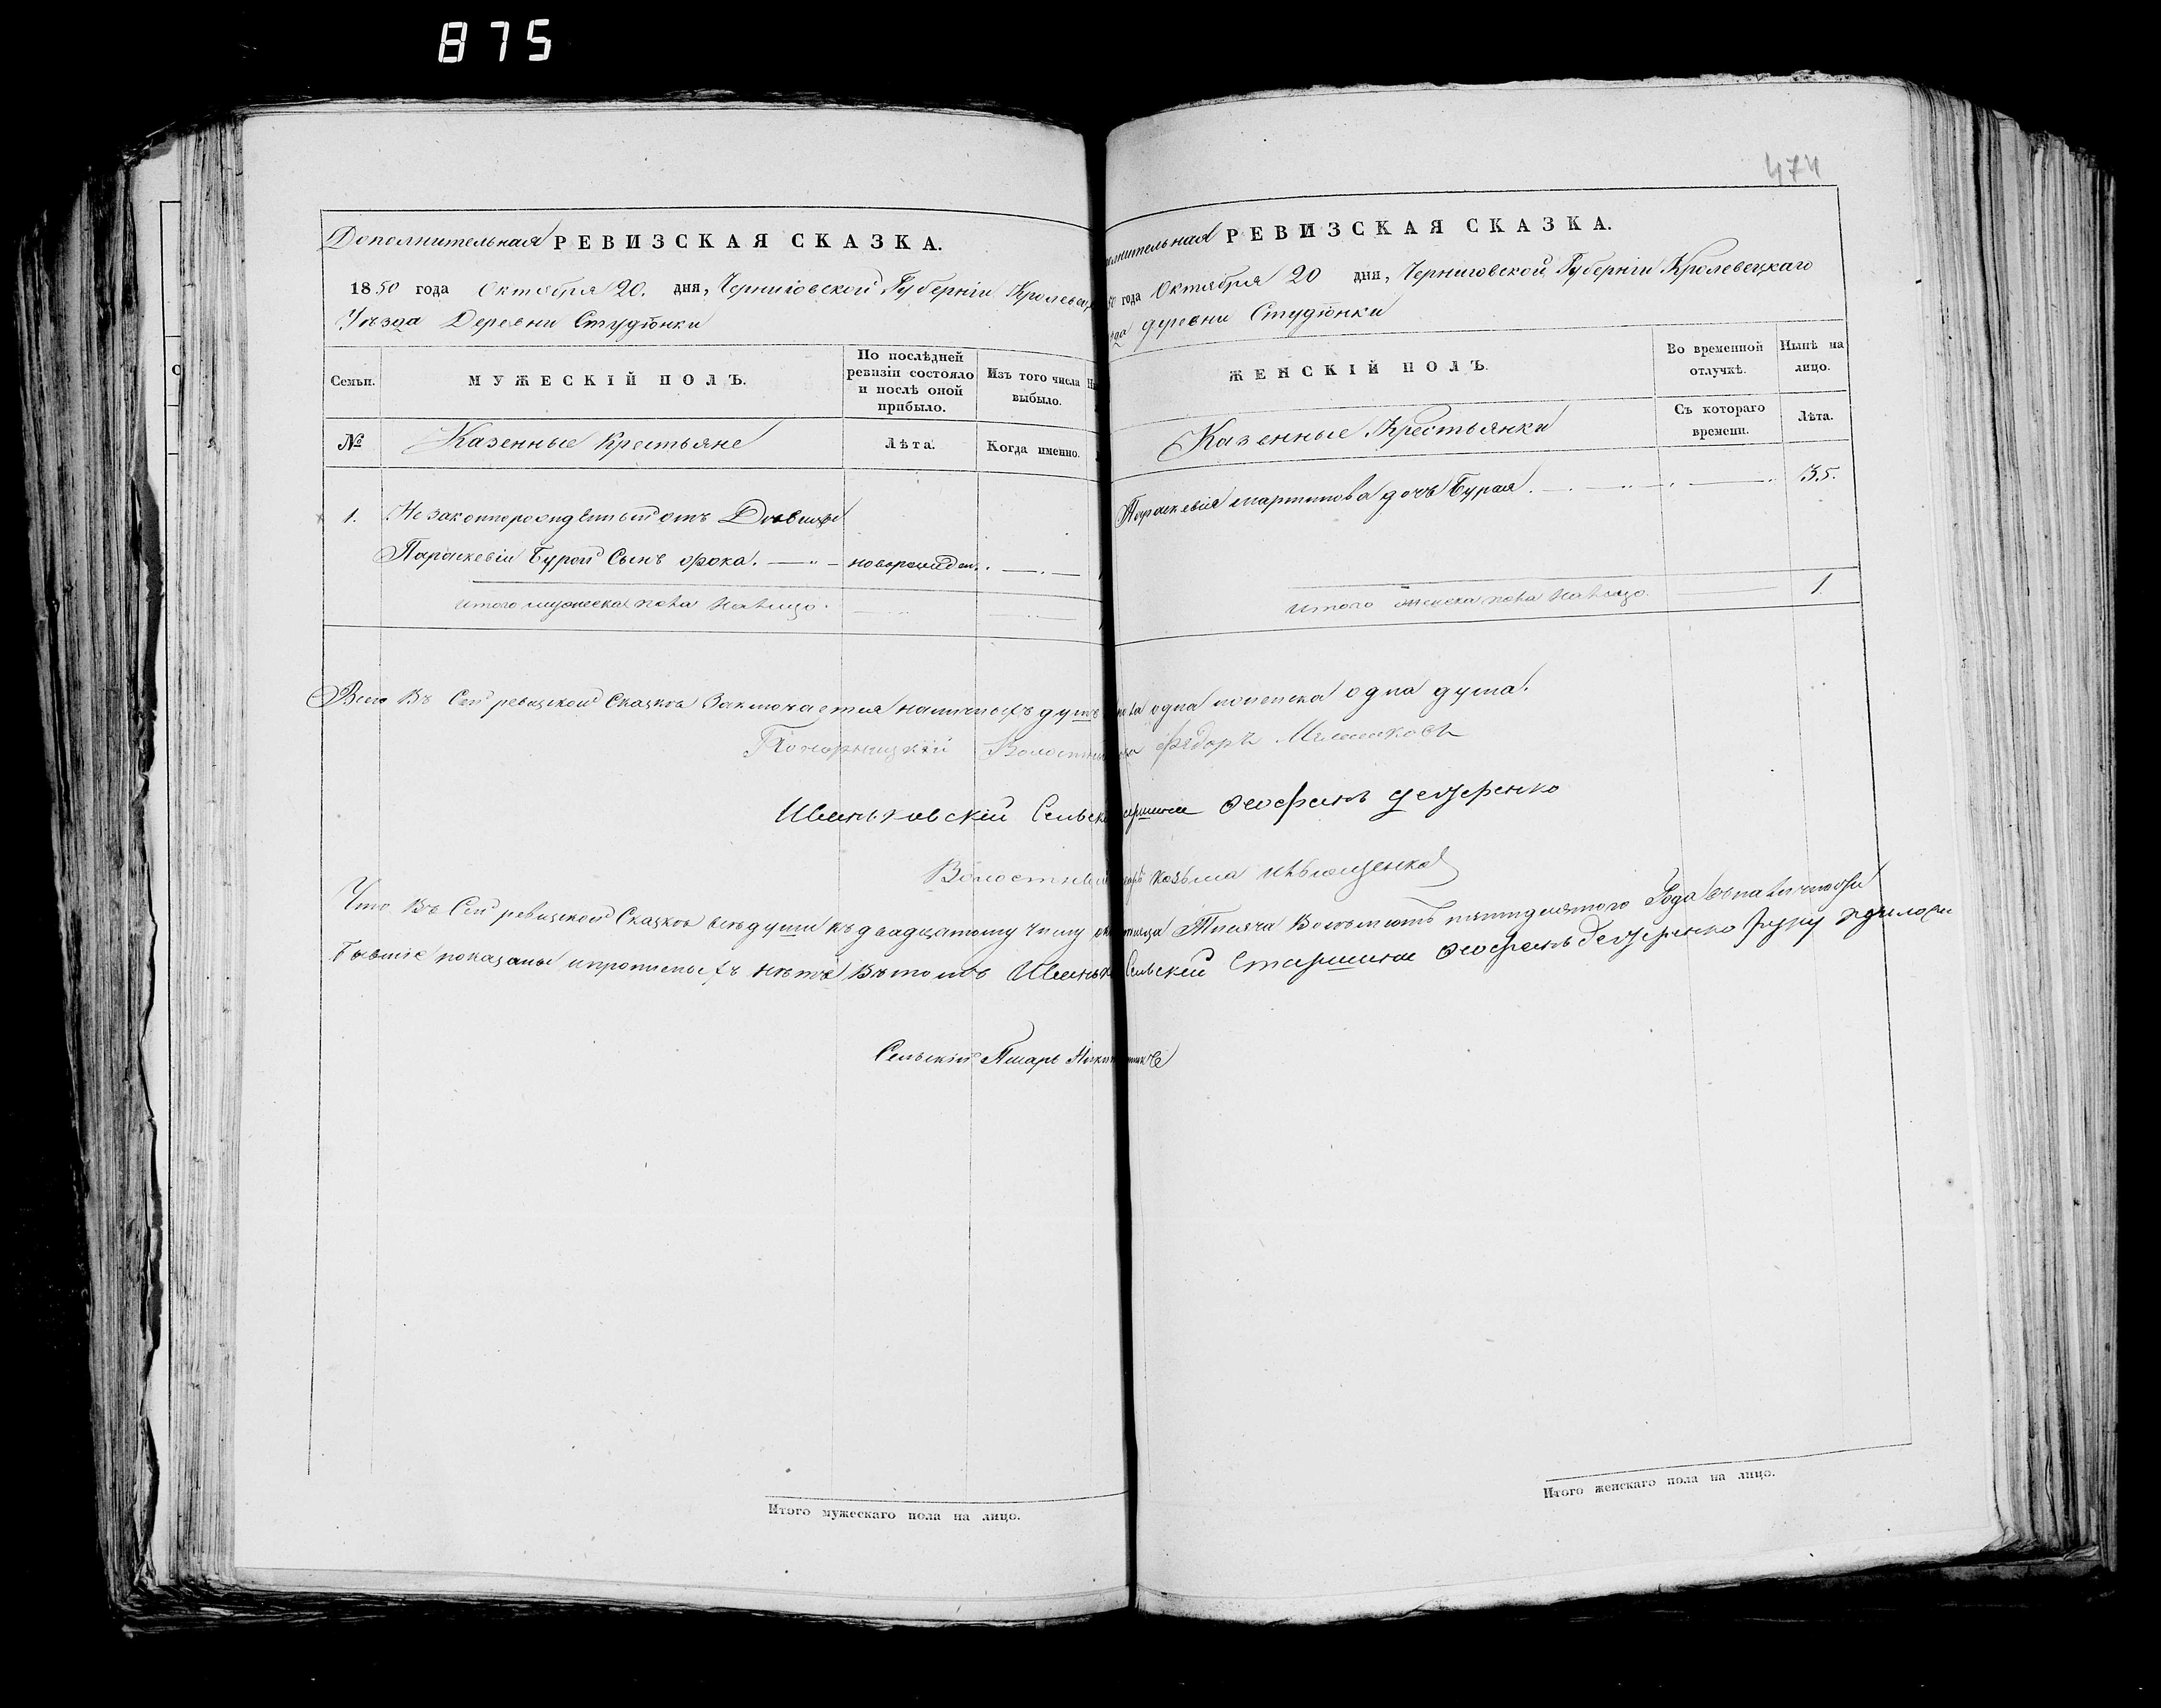 875
Дополнительная РЕВИЗСКАЯ СКАЗКА.
1850 года Октября 20. дня, Черниговской Губерніи Кролевец
Уѣзда Деревни Студіонки
Семьи.
МУЖЕСКІЙ ПОЛЪ.
По послѣдней
ревизіи состояло
и послѣ оной
прибыло.
Изъ того числа
выбыло.
№
Казенные Крестьяне
Лѣта.
Когда именно.
1. Незаконнорожденный отъ Дѣвицы
Параскевіи Бурой Сынъ Фока. новорожден.
Итого мужеска пола Налицо.
474
нительная РЕВИЗСКАЯ СКАЗКА.
50 года Октября 20 дня, Черниговской Губерніи Кролевецкаго
деревни Студіонки
ЖЕНСКІЙ ПОЛЪ.
Во временной
отлучкѣ.
Нынѣ на
лицо.
Казенные Крестьянки
Съ котораго
времени.
Лѣта.
Параскевія мартинова дочь Бурая. 35.
Итого женска пола Налицо. 1.
Всего Въ Сей ревизской Сказкѣ Заключается наличныхъ душъ одна женска одна душа.
Понорницкій Волостный Федоръ
Сельскій Феофанъ
Волостный Козьма
Что Въ Сей ревизской Сказкѣ всѣ души къ двадцатому числу Тысяча Восемьсотъ пятидесятого Года
Бывшіе показаны и прописныхъ нѣтъ Въ томъ Сельскій Старшина Феофанъ руку приложи
Сельскій Писарь
Итого мужескаго пола на лицо.
Итого женскаго пола на лицо.